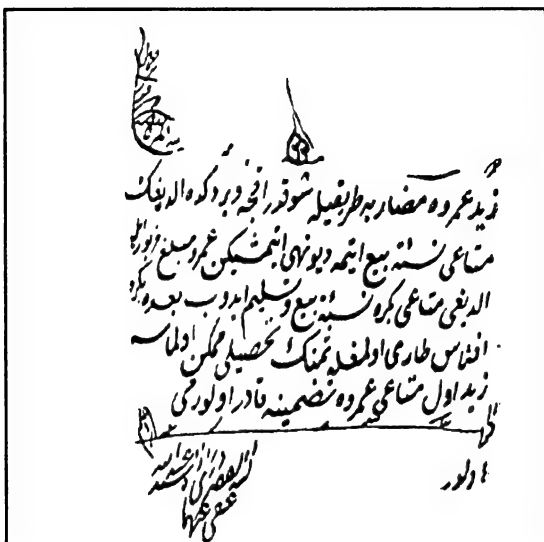 زيد عمروه مضاربه طريقيله شو قدر اقچه ويردكده الديغك
متاعى نسئة بيع ايتمه ديو نهى ايتمشيكن عمرو مبلغ مزبور ايله
الديغى متاعى بكره نسئة بيع و تسليم ايدوب بعده بكره
افلاس طارى اولمغله ثمنك تحصيلى ممكن اولماسه
زيد اول متاعى عمروه تضمينه قادر اولور مى
اولور